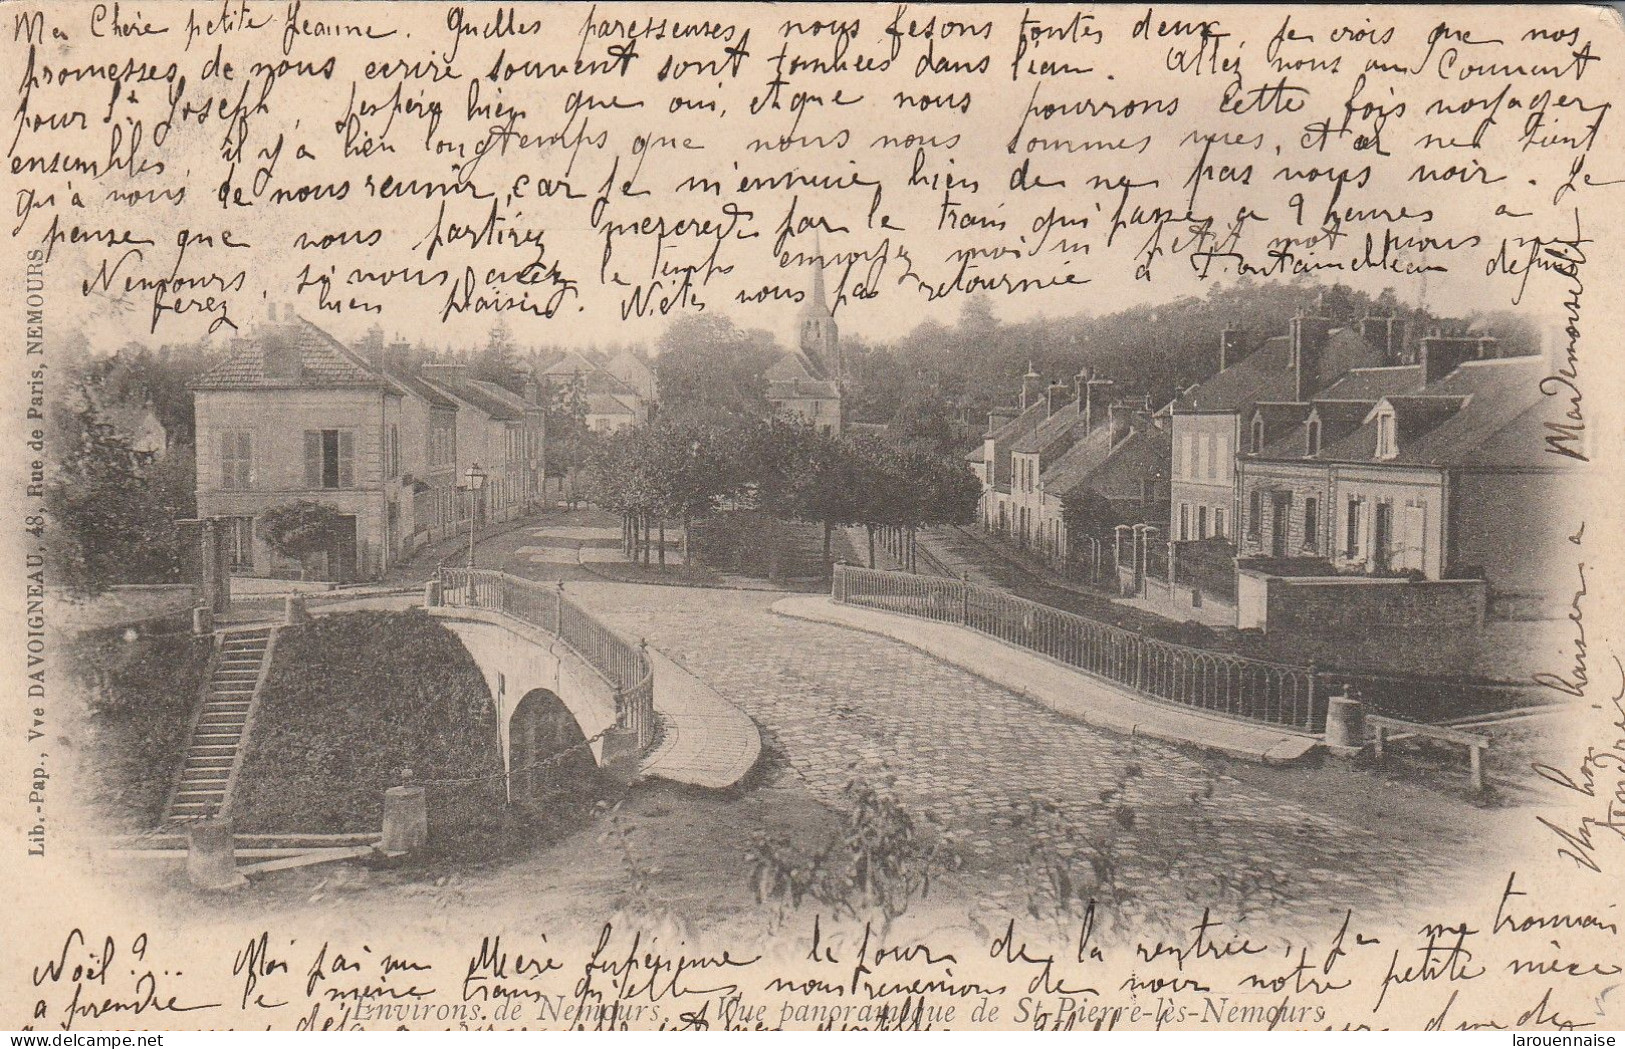 Ma Chère petite Jeanne. Quelles paresseuses nous fesons toutes deux, je crois que nos
promesses de nous ecrire souvent sont tombées dans l'eau. Allez nous au Couvent
pour St. Joseph, j'espère bien que oui, et que nous pourrons cette fois voyager
ensembles, il y a bien longtemps que nous nous sommes vues, et ne tient
qu'à nous de nous reunir, car je m'ennuie bien de ne pas vous voir. Je
pense que nous partirez mercredi par le train qui passe a 9 heures a
Nemours, si vous avez le temps envoyez moi un petit mot vous me
ferez bien plaisir. N'êtes vous pas retournée à Fontainebleau depuis
Noël ?.. Moi j'ai vu Mère Supérieure le jour de la rentrée, je me trouvais
a prendre le même train qu'elle, nous revenions de voir notre petite nièce
Un bon baiser a Mademoiselle
Lib.-Pap., Vve DAVOIGNEAU, 48, Rue de Paris, NEMOURS
Environs de Nemours. - Vue panoramique de St-Pierre-lès-Nemours
larouennaise